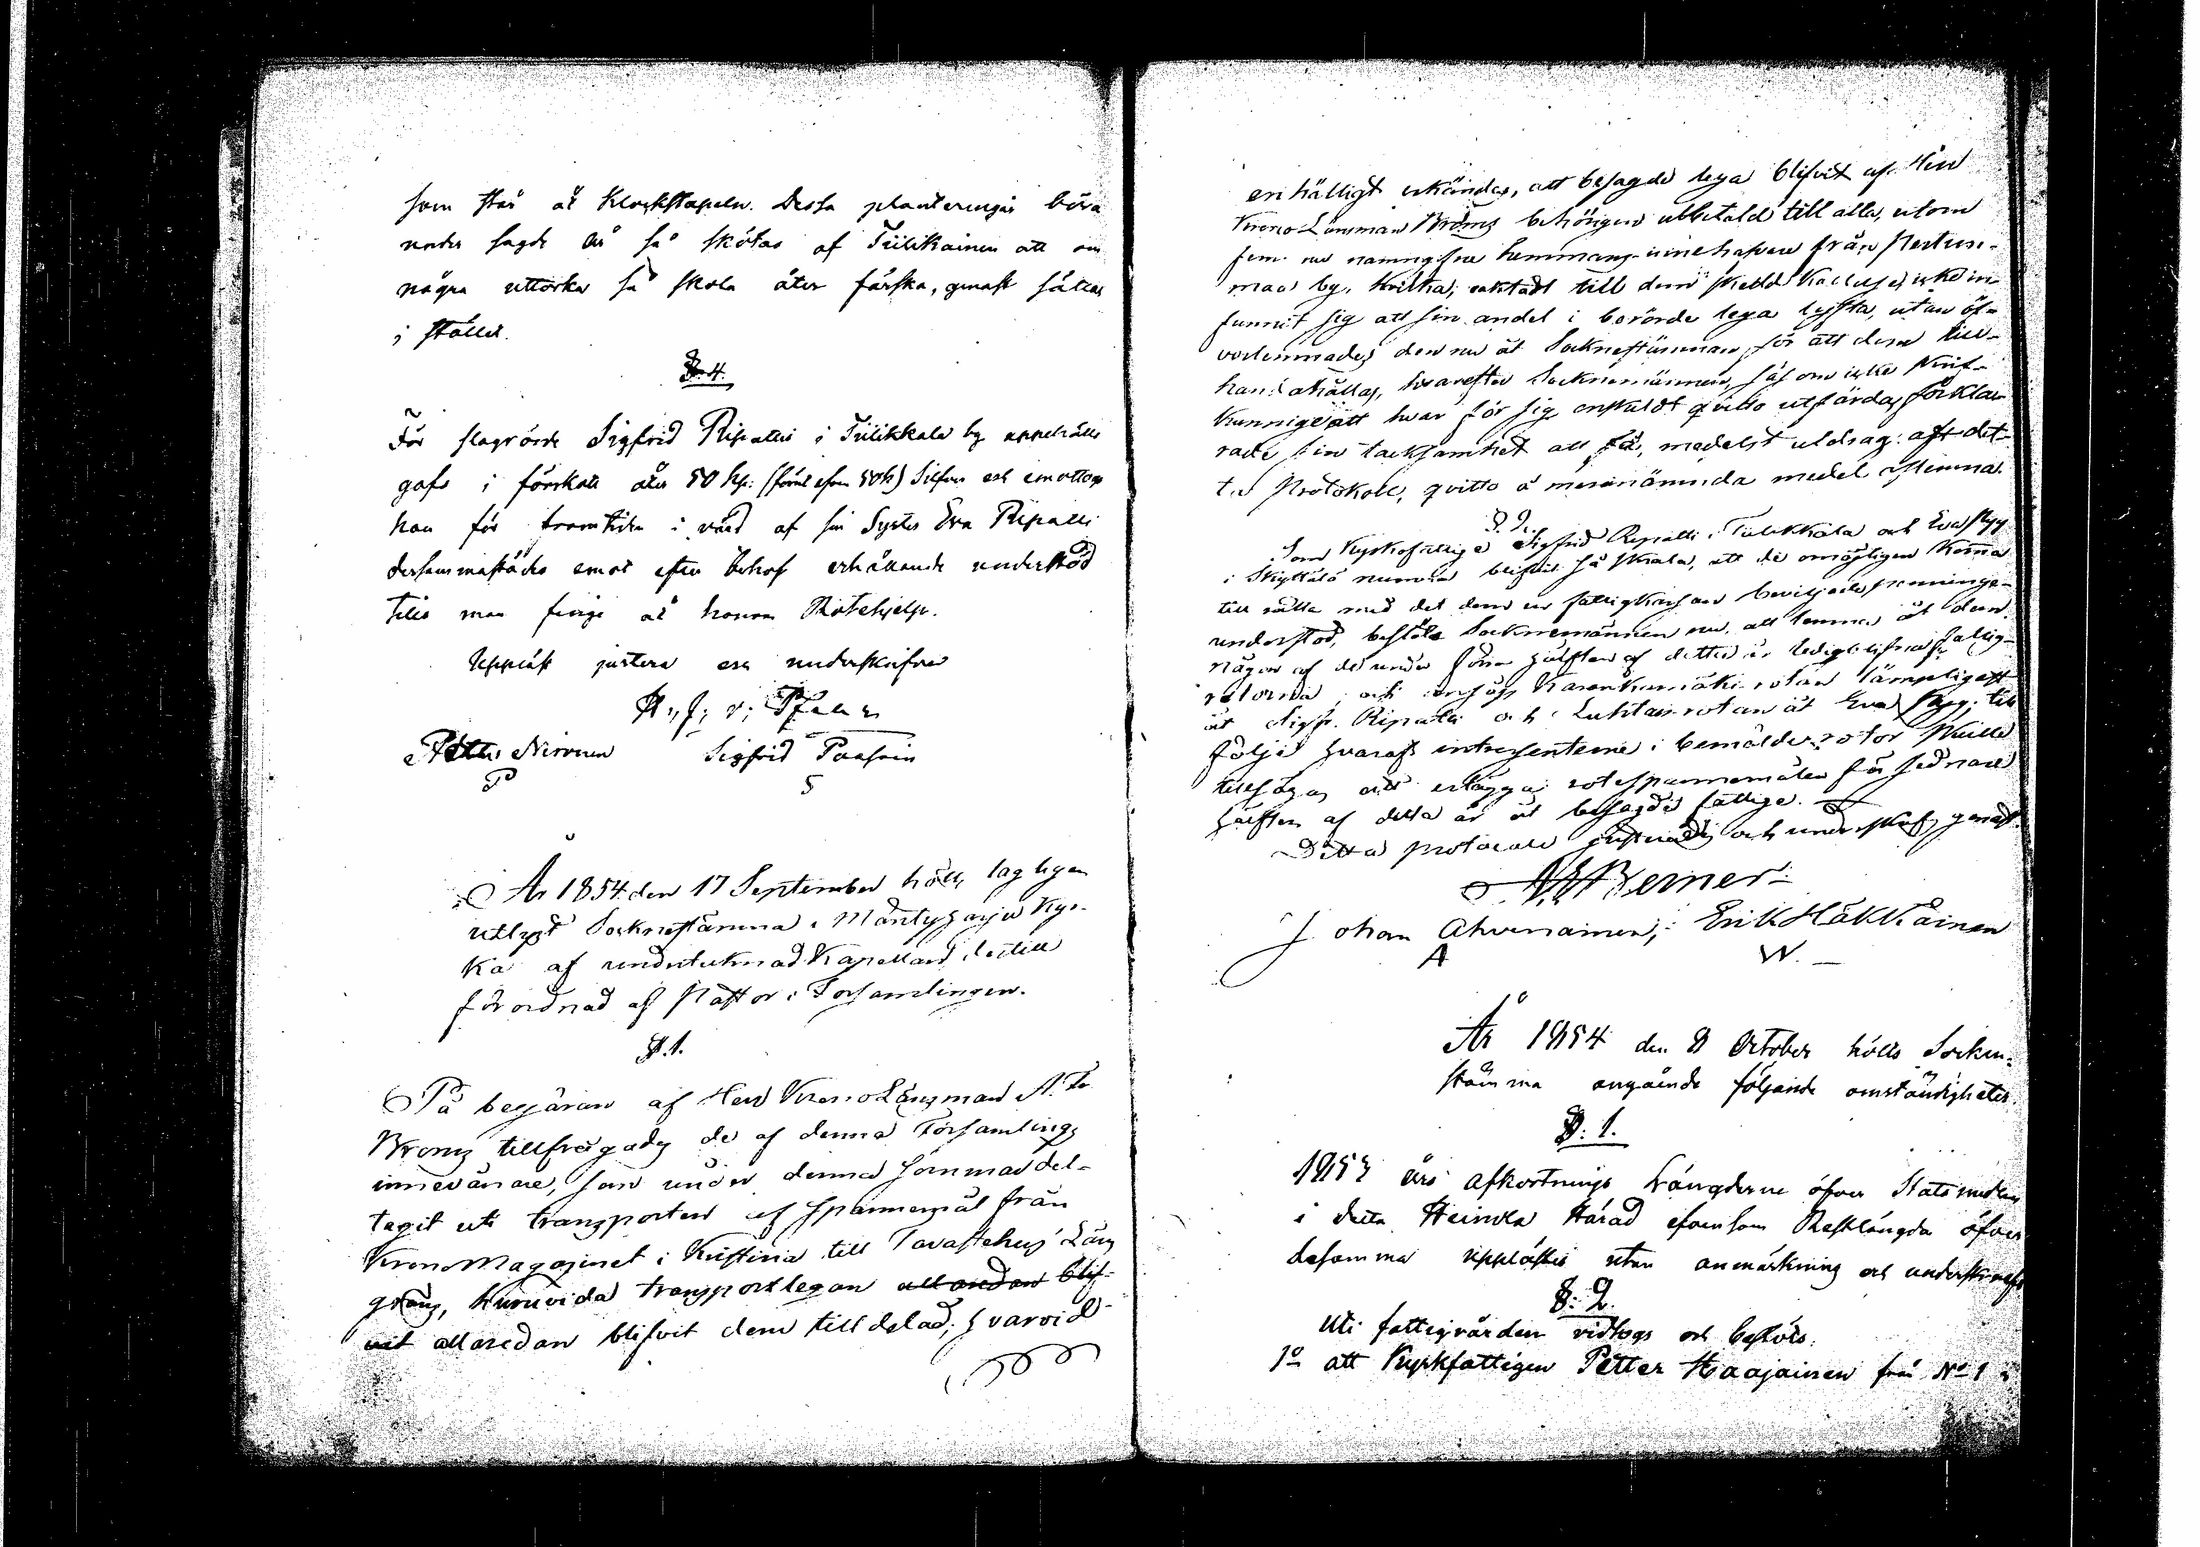 som står åt Klockstapeln. Dessa planteringar böra
under sagde år så skötas af Tiilikainen att om
några uttorka så skola åter färska, genast sättas
i stället.
§. 4.
För slagrörde Sigfrid Ripatti i Tiilikkala by uppehälle
gafs i förskott åter 50 kop: (förut äfven 50 k) Silfver och emottogs
han för framtiden i vård af sin Syster Eva Ripatti
dersammastädes emot efter behof erhållande understöd
tills man finge åt honom Rotehjelp.
Uppläst justera och underskrifva
Petter Nironen Sigfrid Paasoin
P S
År 1854 den 17 September hölls lagligen
utlyst Socknestämma i Mäntyharju Kyr-
ka af undertecknad Kapellan, dertill
förordnad af Pastor i Församlingen.
§. 1.
På begäran af Herr KronoLänsman
Broms tillfrågades de af denna Församlings
innevånare, som under denna sommar del-
tagit uti transporten af spannemål från
KronoMagazinet i Kristina till Tavastehus Läns
gräns, huruvida transportlegan allaredan blif-
vit allaredan blifvit dem tilldelad; hvarvid
enhälligt erkändes, att besagde lega blifvit af Herr
Krono-Länsman Broms behörigen utbetald till alla, utom
fem nu namngifne hemmans-innehafvare från Pertun-
maa by, hvilka, oaktadt till dem skedd Kallelse, icke in-
funnit sig att sin andel i berörde lega lyfta, utan öf-
verlemnades den nu åt Sockenstämman, för att dem till-
handahållas, hvarefter Socknemännen, såsom icke skrif-
kunnige att hvar för sig enskildt qvitto utfärda, förkla-
rade sin tacksamhet att få, medelst utdrag af det-
ta Protokoll, qvitto å merannämnda medel aflemna.
§. 2.
Som Kyrkofattige Sigfrid Ripatti i Tiilikkala och Eva Pyy
i Skyttälä numera blifvit så skrala, att de omöjligen Kunna
till rätta med det dem ur fattigkassan beviljade pennings-
understöd, beslöto Socknemännen nu, att lemna åt dem
någon af de under förra hälften af detta år ledigblifna fattig-
rotorna, och ansågs Karankamäki-rotan lämpligast
åt Sigfr. Ripatti och Luhtais-rotan åt Eva Pyy; till
följe hvaraf intressenterne i bemälde rotor skulle
tillsägas att erlägga rotespannemålen för sednare
hälften af detta år åt besagde fattige.
Detta protocoll justerades och underskrefs genast.
Berner
Johan Ahvenainen, Erik Häkkäinen
A W.
År 1854 den 8 October hölls Socken-
stämma angående följande omständigheter
§. 1.
1853 års afkortnings längderne öfver Statsmedlen
i detta Heinola Härad äfvensom Restlängden öfver
desamma upplästes utan anmärkning och underskrefs
§. 2.
Uti fattigvården vidtogs och beslöts:
1o att Kyrkfattigen Petter Haajainen från No 1